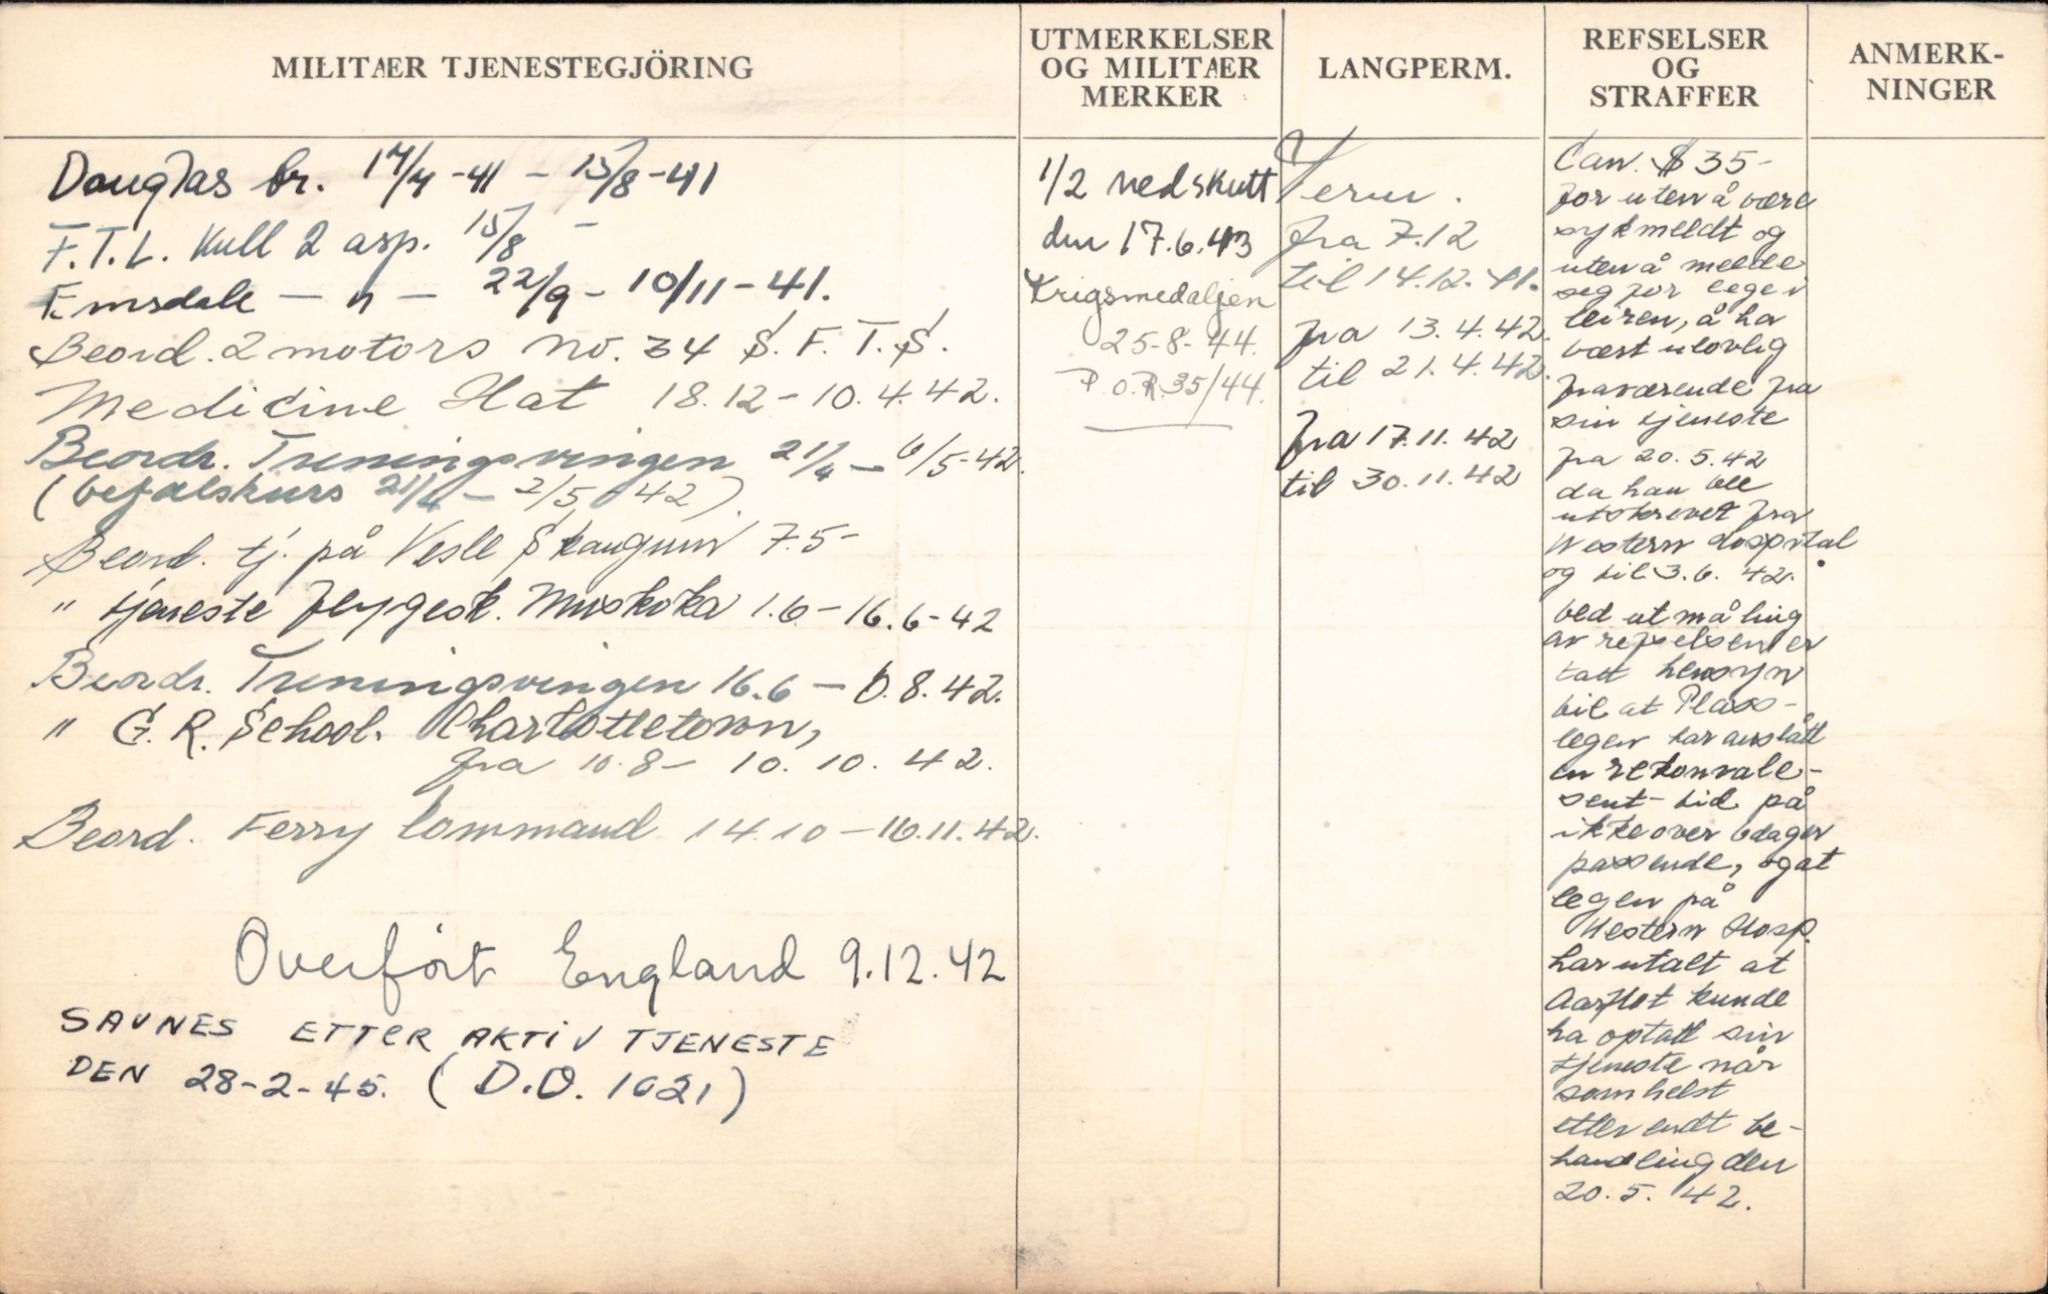 MILITÆR TJENESTEGJÖRING
UTMERKELSER
OG MILITÆR
MERKER
LANGPERM.
REFSELSER
OG
STRAFFER
ANMERK-
NINGER
Douglas br. 17/4-41 - 15/8-41
F.T.L. Kull 2 asp. 15/8 -
Emsdale - n - 22/9 - 10/11-41.
Beord. 2 motors No. 34 S.F.T.S.
Medicine Hat 18.12 - 10.4.42.
Beordr. Treningsvingen 21/4 - 6/5-42.
(befalskurs 21/4 - 2/5 42).
Beord. tj. på Vesle Skaugum 7.5-
" tjeneste flygesk. Muskoka 1.6 - 16.6-42
Beordr. Treningsvingen 16.6 - 6.8.42.
" G.R. School. Charlottetown,
fra 10.8 - 10.10.42.
Beord. Ferry Command 14.10 - 16.11.42.
Overført England 9.12.42
SAVNES ETTER AKTIV TJENESTE
DEN 28-2-45. (D.O. 1621)
1/2 nedskutt
den 17.6.43
Krigsmedaljen
25-8-44.
P.O.R. 35/44.
Perm.
fra 7.12
til 14.12.41.
fra 13.4.42.
til 21.4.42.
fra 17.11.42
til 30.11.42
Can. $35-
for uten å være
sykmeldt og
uten å melde
seg for lege i
leiren, å ha
vært ulovlig
fraværende fra
sin tjeneste
fra 20.5.42
da han ble
utskrevet fra
Western Hospital
og til 3.6.42.
Ved utmåling
av refselsen er
tatt hensyn
til at Plass-
legen har anslått
en rekonvale-
sent-tid på
ikke over 6 dager
passende, og at
legen på
Western Hosp.
har utalt at
Aarflot kunde
ha optatt sin
tjeneste når
somhelst
etter endt be-
handling den
20.5.42.